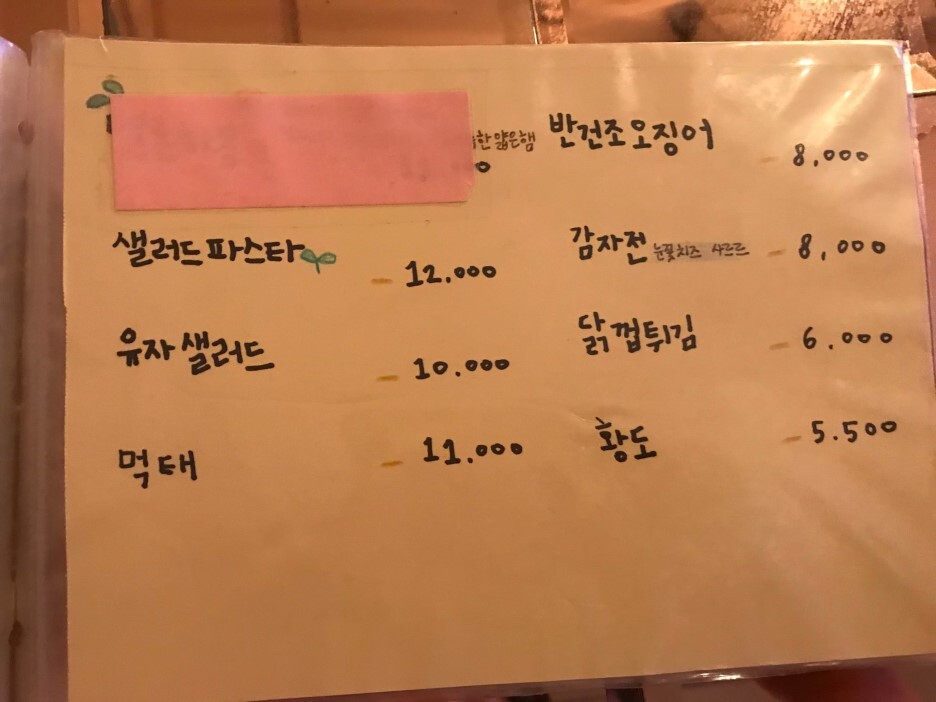 얇은햄
샐러드파스타 - 12.000
유자샐러드 - 10.000
먹태 - 11.000
반건조오징어 - 8,000
감자전 눈꽃치즈 사르르 - 8,000
닭껍튀김 - 6.000
황도 - 5.500